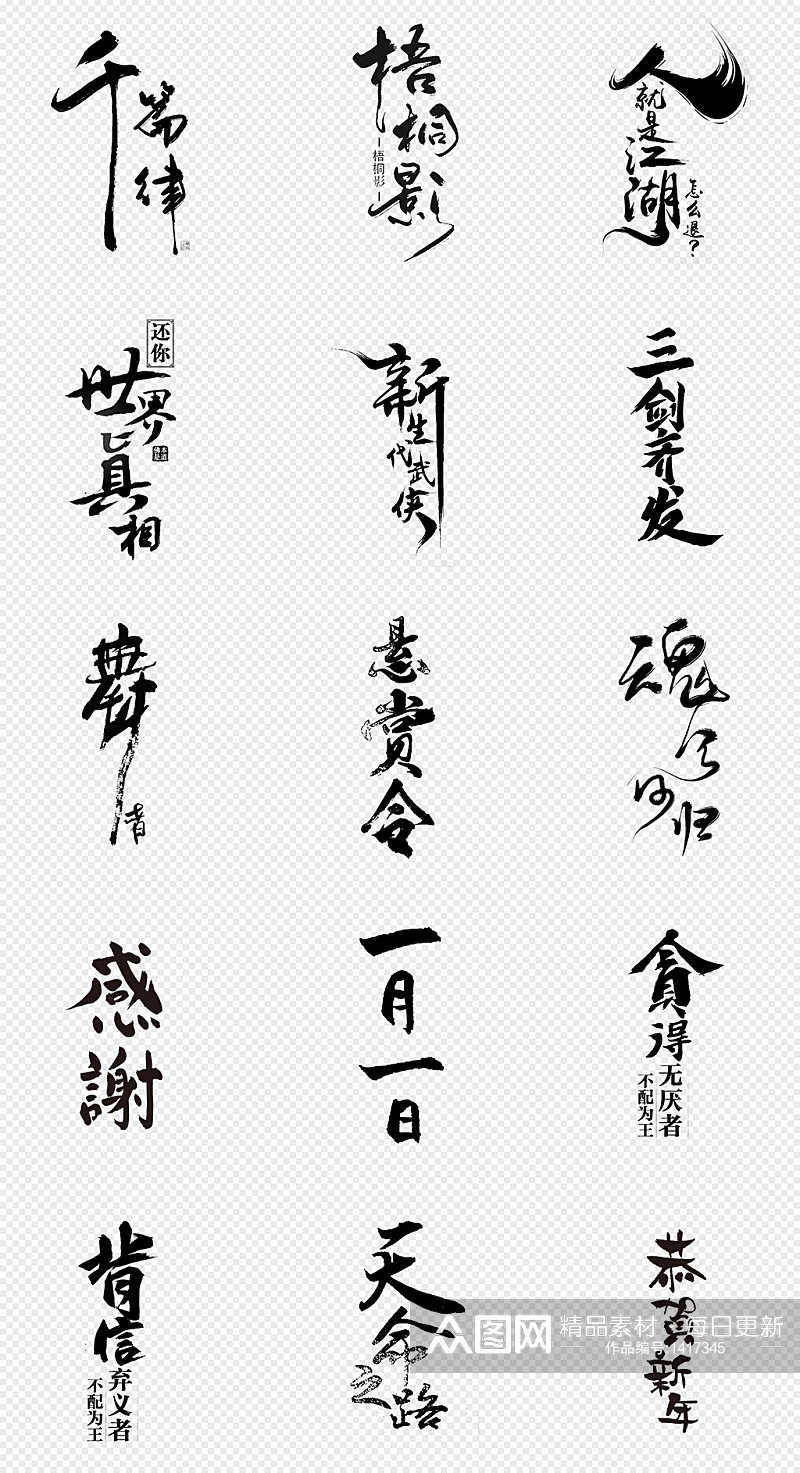 千篇律
梧桐影
梧桐影
人就是江湖
怎么退?
还你
世界真相
本道
佛是
新生代武侠
三剑齐发
舞者
悬赏令
魂兮归
感謝
一月一日
貪得无厌者
不配为王
背信弃义者
不配为王
天命之路
恭贺新年
众图网
精品素材·每日更新
作品编号:1417345